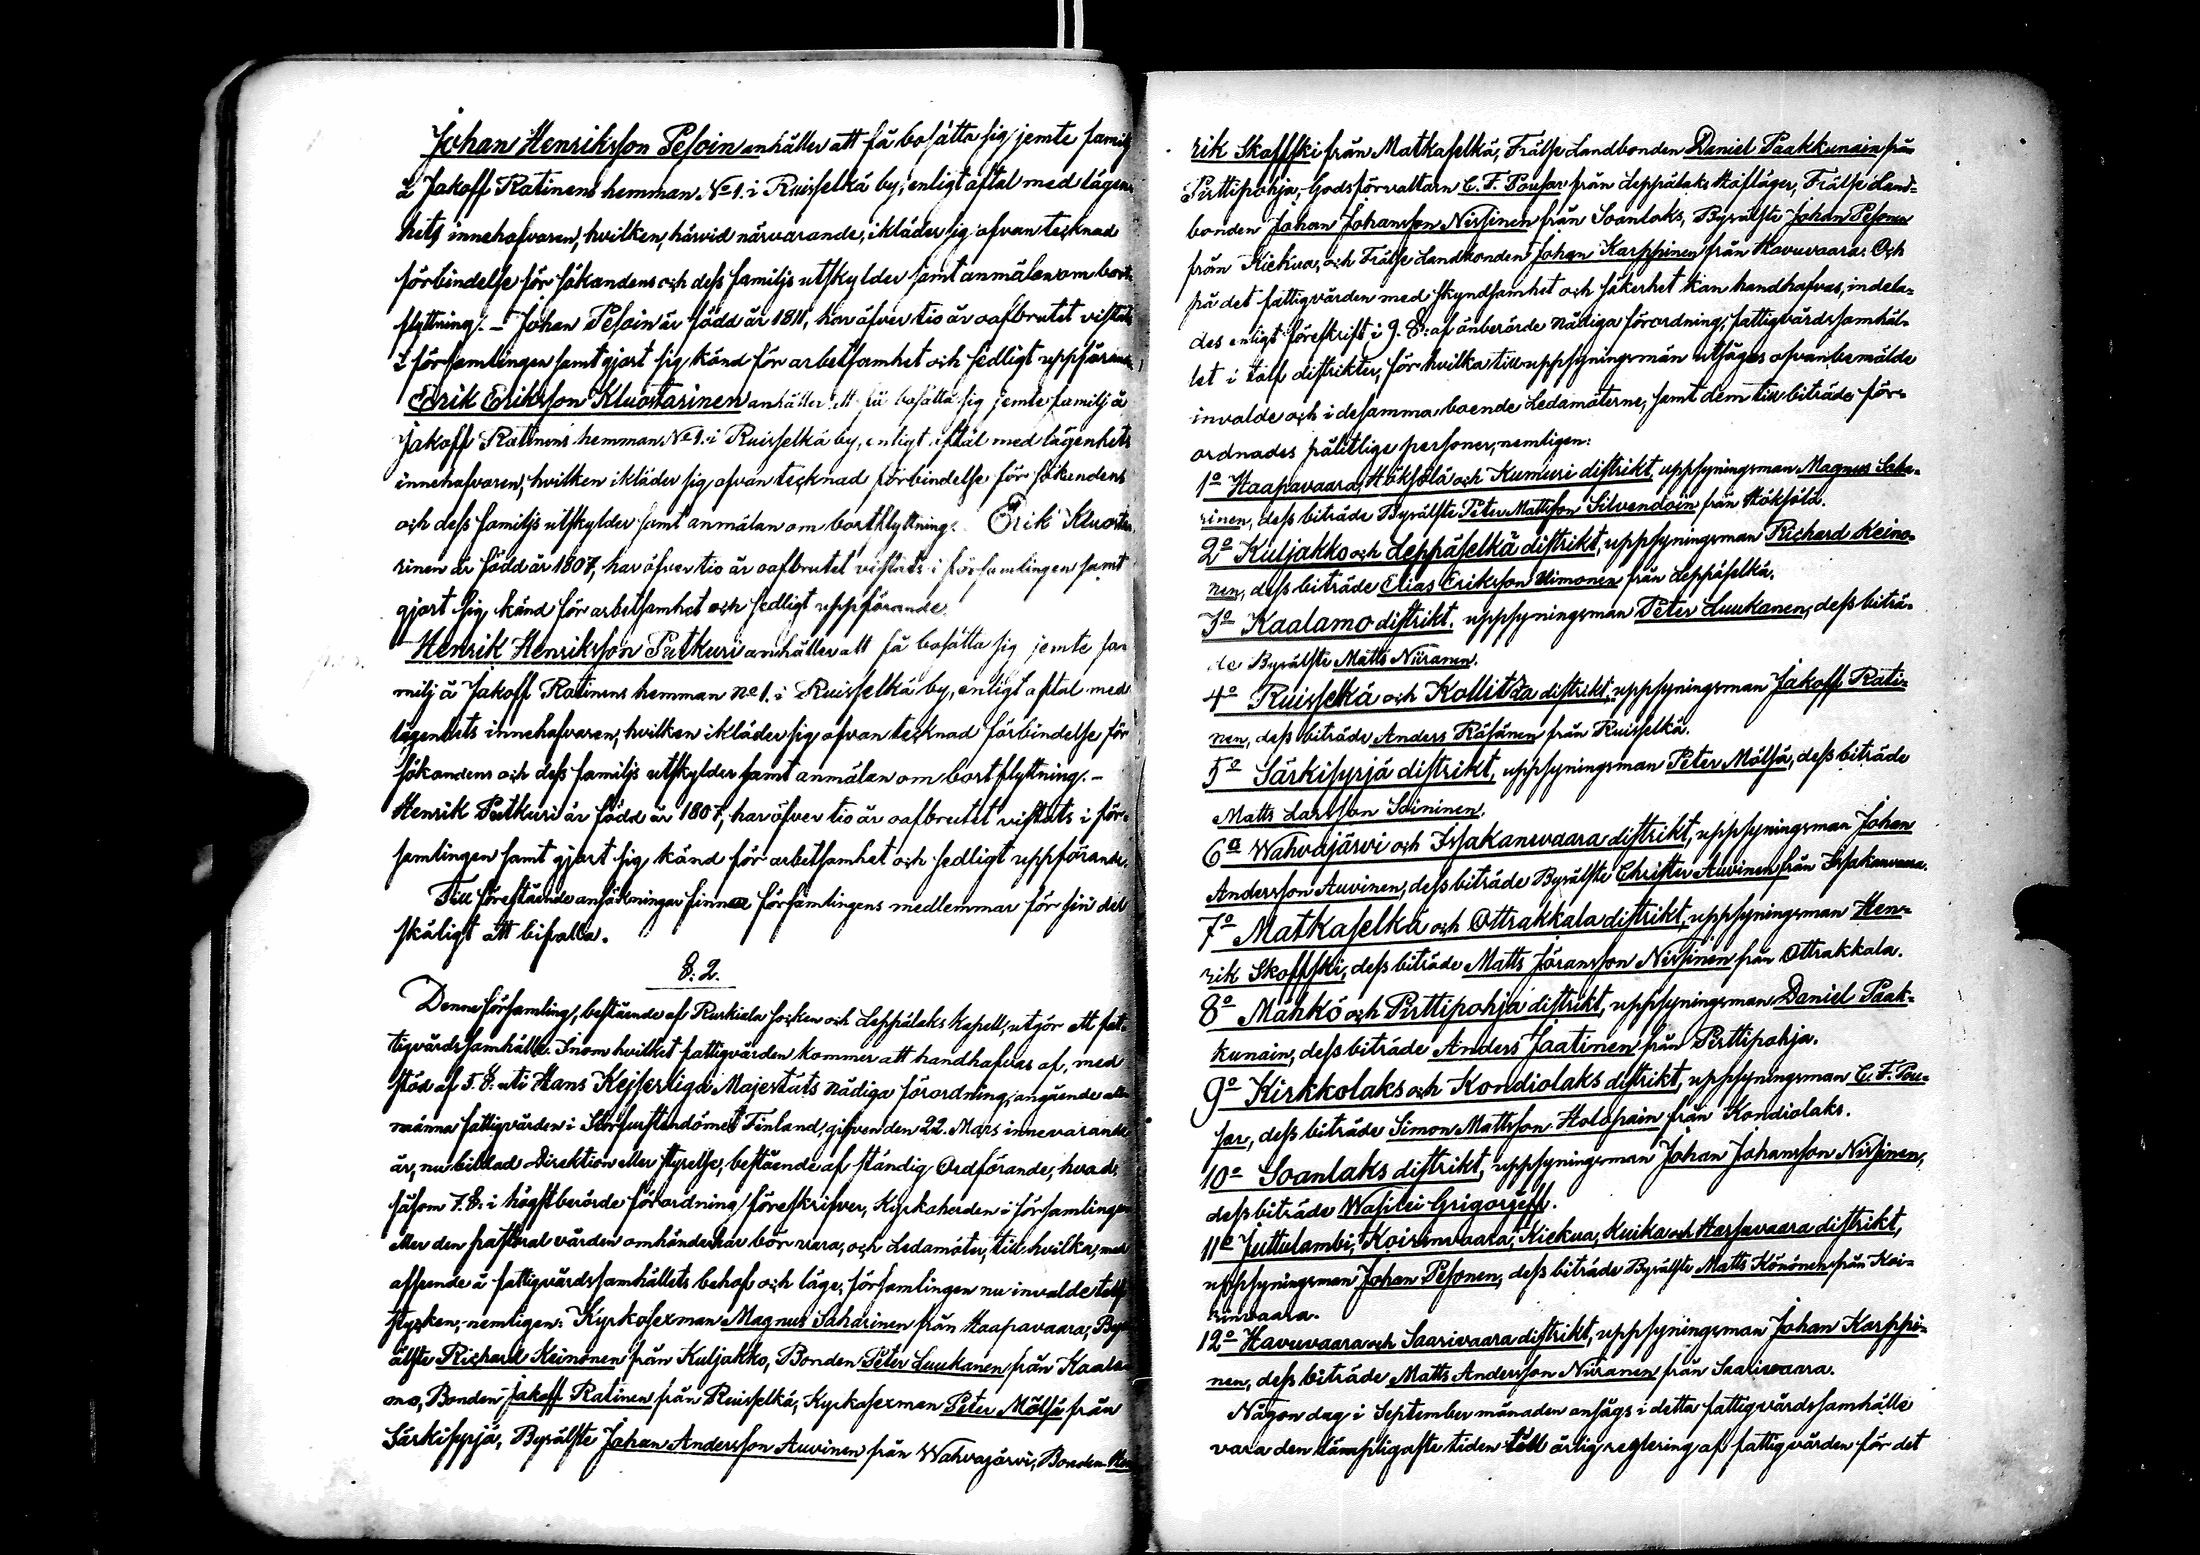 Johan Henriksson Pesoin anhåller att få bosätta sig jemte familj
å Jakoff Ratinens hemman No 1. i Ruisselkä by, enligt aftal med lägen-
hets innehafvaren, hvilken, härvid närvarande, ikläder sig ofvan tecknad
förbindelse för sökandens och dess familjs utskylder samt anmälan om bort-
flyttning. – Johan Pesoin är född år 1811, har öfver tio år oafbrutet vistats
i församlingen samt gjort sig känd för arbetsamhet och sedligt uppförande.
Erik Eriksson Kluostarinen anhåller att få bosätta sig jemte familj å
Jakoff Ratinens hemman No 1. i Ruisselkä by, enligt aftal med lägenhets
innehafvaren, hvilken ikläder sig ofvan tecknad förbindelse för sökandens
och dess familjs utskylder samt anmälan om bortflyttning. Erik Kluosta-
rinen är född år 1807, har öfver tio år oafbrutet vistats i församlingen samt
gjort sig känd för arbetsamhet och sedligt uppförande.
Henrik Henriksson Putkuri anhåller att få bosätta sig jemte fa-
milj å Jakoff Ratinens hemman No 1. i Ruisselkä by, enligt aftal med
lägenhets innehafvaren, hvilken ikläder sig ofvan tecknad förbindelse för
sökandens och dess familjs utskylder samt anmälan om bortflyttning. –
Henrik Putkuri är född år 1807, har öfver tio år oafbrutet vistats i för-
samlingen samt gjort sig känd för arbetsamhet och sedligt uppförande.
Till förestående ansökningar finna församlingens medlemmar för sin del
skäligt att bifalla.
§. 2.
Denne församling, bestående af Ruskiala socken och Leppälaks kapell, utgör ett fat-
tigvårdssamhälle. Inom hvilket fattigvården kommer att handhafvas af, med
stöd af 5. §. uti Hans Kejserliga Majestäts nådiga förordning, angående all-
männa fattigvården i Storfurstendömet Finland, gifven den 22. Mars innevarande
år, nu bildad Direktion eller styrelse, bestående af ständig Ordförande, hvad,
såsom 7. §. i högstberörde förordning föreskrifver, Kyrkoherden i församlingen
eller den pastoral vården omhänderhar bör vara, och Ledamöter, till hvilka, med
afseende å fattigvårdssamhällets behof och läge, församlingen nu invalde tolf
stycken, nemligen: Kyrkosexman Magnus Saharinen från Haapavaara, By-
älste Richard Keinonen från Kuljakko, Bonden Peter Luukanen från Kaala-
mo, Bonden Jakoff Ratinen från Ruisselkä, Kyrkosexman Peter Mölsä från
Särkisyrjä, Byeälste Johan Andersson Auvinen från Wahvajärvi, Bonden Hen-
rik Skoffski från Matkaselkä, Frälse Landbonden Daniel Paakkunain från
Pirttipohja, Godsförvaltarn C. F. Pousar från Leppälaks Hofläger, Frälse Land-
bonden Johan Johansson Nissinen från Soanlaks, Byeälste Johan Pesonen
från Kiekua, och Frälse Landbonden Johan Karppinen från Havuvaara. Och
på det fattigvården med skyndsamhet och säkerhet kan handhafvas, indela-
des enligt föreskrift i 9. §. af önberörde nådiga förordning, fattigvårdssamhäl-
let i tolf distrikter, för hvilka till uppsyningsmän utsåges ofvanbemälde
invalde och i desamma boende Ledamöterne, samt dem till biträde för-
ordnades pålitlige personer, nemligen:
1o Haapavaara, Hököslä och Kumuri distrikt, uppsyningsman Magnus Saha-
rinen, dess biträde Byeälste Peter Mattsson Silvendoin från Hököslä.
2o Kuljakko och Leppäselkä distrikt, uppsyningsman Richard Keino-
nen, dess biträde Elias Eriksson Uimonen från Leppäselkä.
3o Kaalamo distrikt, uppsyningsman Peter Luukanen, dess biträ-
de Byeälste Matts Niiranen.
4o Ruisselkä och Kollitza distrikt, uppsyningsman Jakoff Rati-
nen, dess biträde Anders Räsänen från Ruisselkä.
5o Särkisyrjä distrikt, uppsyningsman Peter Mölsä, dess biträde
Matts Larsson Soininen.
6o Wahvajärvi och Issakanvaara distrikt, uppsyningsman Johan
Andersson Auvinen, dess biträde Byeälste Christer Auvinen från Issakanvaara.
7o Matkaselkä och Ottrakkala distrikt, uppsyningsman Hen-
rik Skoffski, dess biträde Matts Jöransson Nissinen från Ottrakkala.
8o Mähkö och Pirttipohja distrikt, uppsyningsman Daniel Paak-
kunain, dess biträde Anders Jaatinen från Pirttipohja.
9o Kirkkolaks och Kondiolaks distrikt, uppsyningsman C. F. Pou-
sar, dess biträde Simon Mattsson Holopain från Kondiolaks.
10o Soanlaks distrikt, uppsyningsman Johan Johansson Nissinen,
dess biträde Wasilei Grigorjeff.
11o Juttulambi, Koirinvaara, Kiekua, Kuika och Harsavaara distrikt,
uppsyningsman Johan Pesonen, dess biträde Byeälste Matts Könönen från Koi-
rinvaara.
12o Havuvaara och Saarivaara distrikt, uppsyningsman Johan Karppi-
nen, dess biträde Matts Andersson Niiranen från Saarivaara.
Någon dag i September månaden ansågs i detta fattigvårdssamhälle
vara den lämpligaste tiden till årlig reglering af fattigvården för det